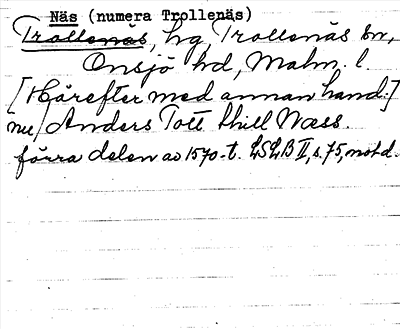 Näs (numera Trollenäs)
Trollenäs, hg, Trollenäs sn,
Onsjö hd, Malm. l.
[Härefter med annan hand:]
nu/Anders Tott thill Næss.
förra delen av 1570-t. LSLB II, s. 75, not d.